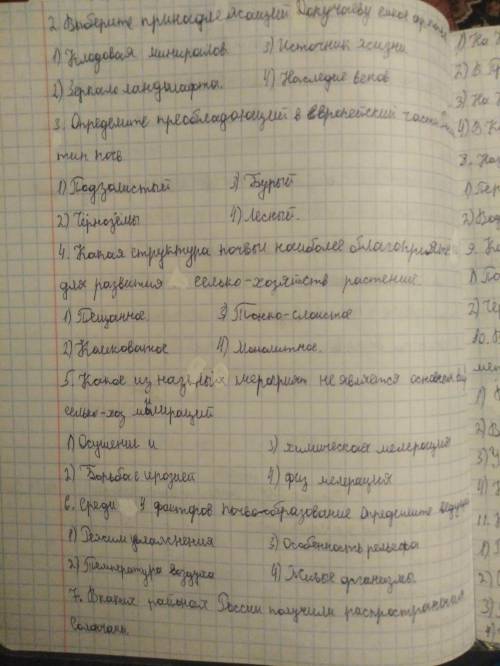 2. Выберите принадлежащий Докучаеву
1) Кладовая миниралов. 3) Источник жизни
2) Зеркало ландшафта. 4) Наследие веков
3. Определите преобладающий в европейский части
тип почв
1) Подзолистый 3) Бурый
2) Чернозёмы 4) Лесный.
4. Какая структура почвы наиболее
для развития селько-хозяйств растение.
1) Песчанное. 3) Тонко-слоистое
2) Комковатное 4) Монолитное.
5. Какое из мероприят не является
селько-хоз
1) Осушении и 3) химическая мелерация
2) Борьба с ерозией 4) физ мелерация
6. Среди 4 факторов почво-образование определите
1) Режим увлажнения 3) Особенность рельефа
2) Температура воздуха 4) Живые организмы.
7. В каких районах России получили
Солончаки.
1) На
2) В
3) На
4) В
8.
1)
2)
9.
1)
2)
10.
1)
2)
3)
4)
11.
1)
2)
3)